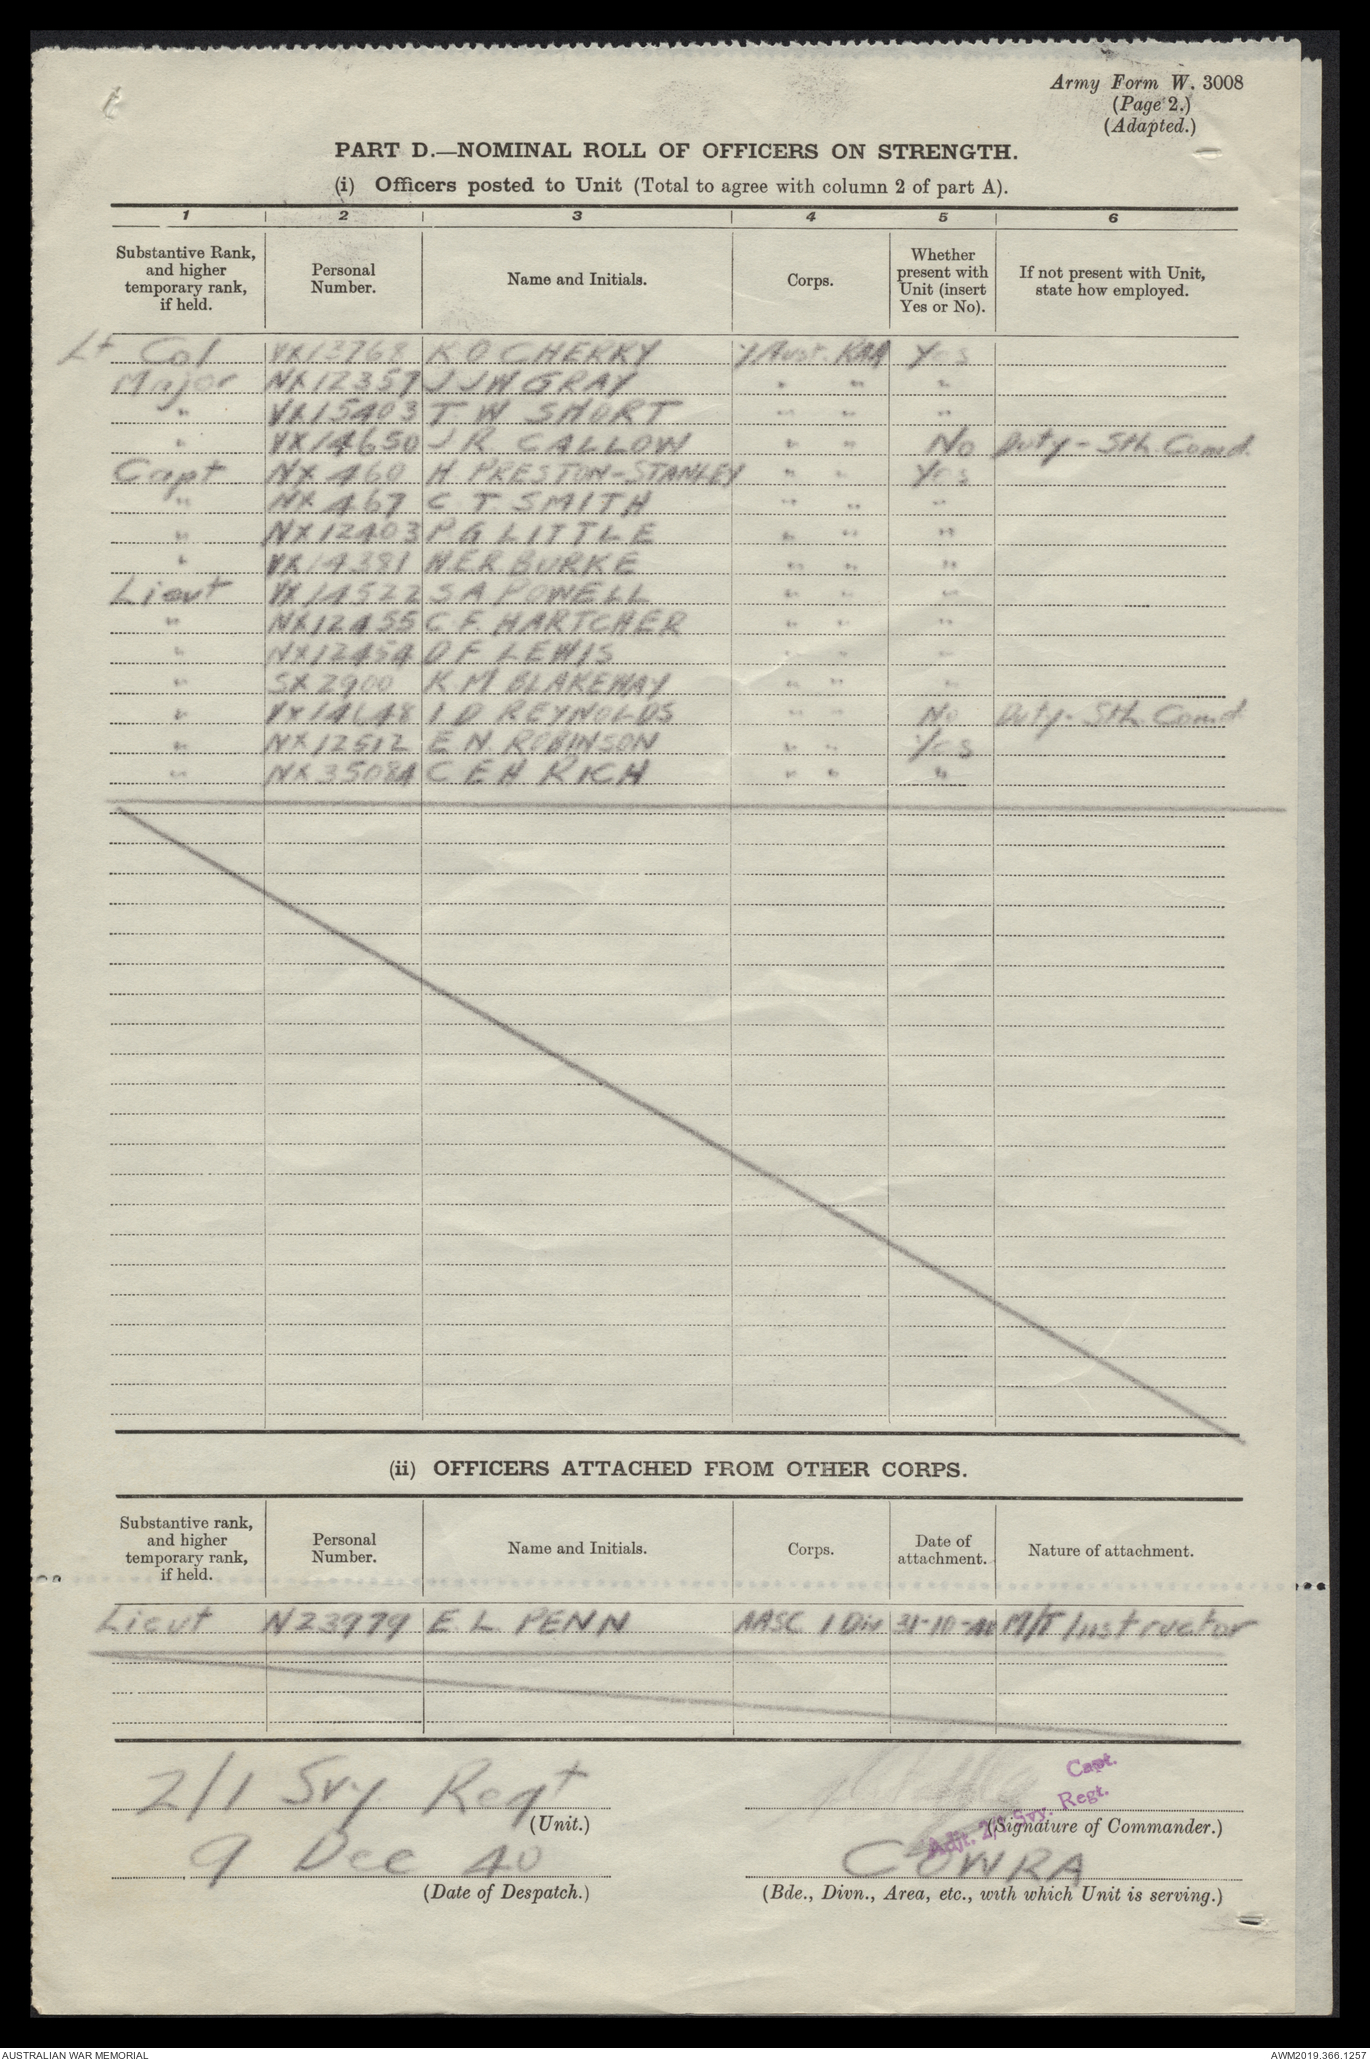 Army Form W. 3008
(Page 2.)
(Adapted.)
PART D.—NOMINAL ROLL OF OFFICERS ON STRENGTH.
(i) Officers posted to Unit (Total to agree with column 2 of part A).
1 2 3 4 5 6
Substantive Rank, and higher temporary rank, if held. Personal Number. Name and Initials. Corps. Whether present with Unit (insert Yes or No). If not present with Unit, state how employed.
Lt Col VX13768 K O CHERRY Aust. RAA Yes
Major NX12357 J J W GRAY " " "
" VX15403 T. W SHORT " " "
" VX14650 J R. CALLOW " " No Duty - Sth. Comd.
Capt NX 460 H. PRESTON-STANLEY " " Yes
" NX 467 C T. SMITH " " "
" NX12403 P. G LITTLE " " "
" VX14381 H.E.R BURKE " " "
Lieut VX14522 S A POWELL " " "
" NX12455 C. F. HARTCHER " " "
" NX12454 D F LEWIS " " "
" SX 2900 K. M BLAKEWAY " " "
" I D REYNOLDS " " No Duty - Sth. Comd
" NX12512 E N. ROBINSON " " Yes
" NX35084 C E H RICH " " "
(ii) OFFICERS ATTACHED FROM OTHER CORPS.
Substantive rank, and higher temporary rank, if held. Personal Number. Name and Initials. Corps. Date of attachment. Nature of attachment.
Lieut N23979 E. L PENN AASC 1 Div 31-10-40 M/T Instructor
2/1 Svy Regt
Capt.
Adjt. 2/1 Svy. Regt.
(Unit.) (Signature of Commander.)
9 Dec 40 COWRA
(Date of Despatch.) (Bde., Divn., Area, etc., with which Unit is serving.)
AUSTRALIAN WAR MEMORIAL AWM2019.366.1257